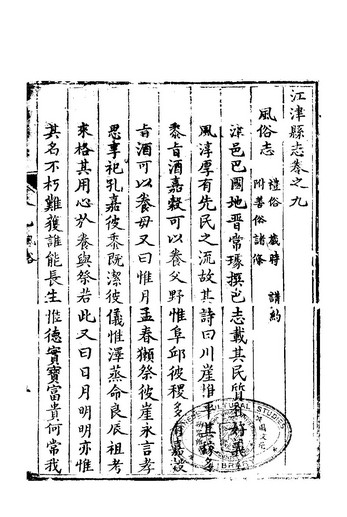 江津縣志卷之九
風俗志 禮俗 歲時 講約
附善俗諸條
津邑巴國地晋常璩撰巴志載其民質直好義
風淳厚有先民之流故其詩曰川崖惟平其稼多
黍旨酒嘉穀可以養父野惟阜邱彼稷多有嘉穀
旨酒可以養母又曰惟月孟春獺祭彼崖永言孝
思享祀孔嘉彼黍既潔彼儀惟澤蒸命良辰祖考
來格其用心於養與祭若此又曰日月明明亦惟
其名不朽難獲誰能長生惟德實寶富貴何常我